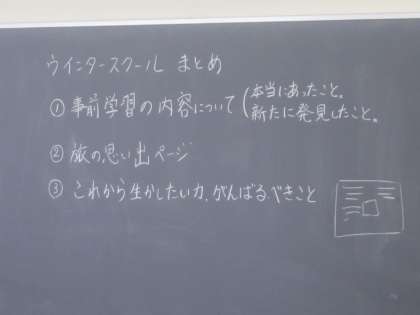 ウインタースクール まとめ
① 事前学習の内容について(本当にあったこと。
新たに発見したこと。
② 旅の思い出ページ
③ これから生かしたい力、がんばるべきこと